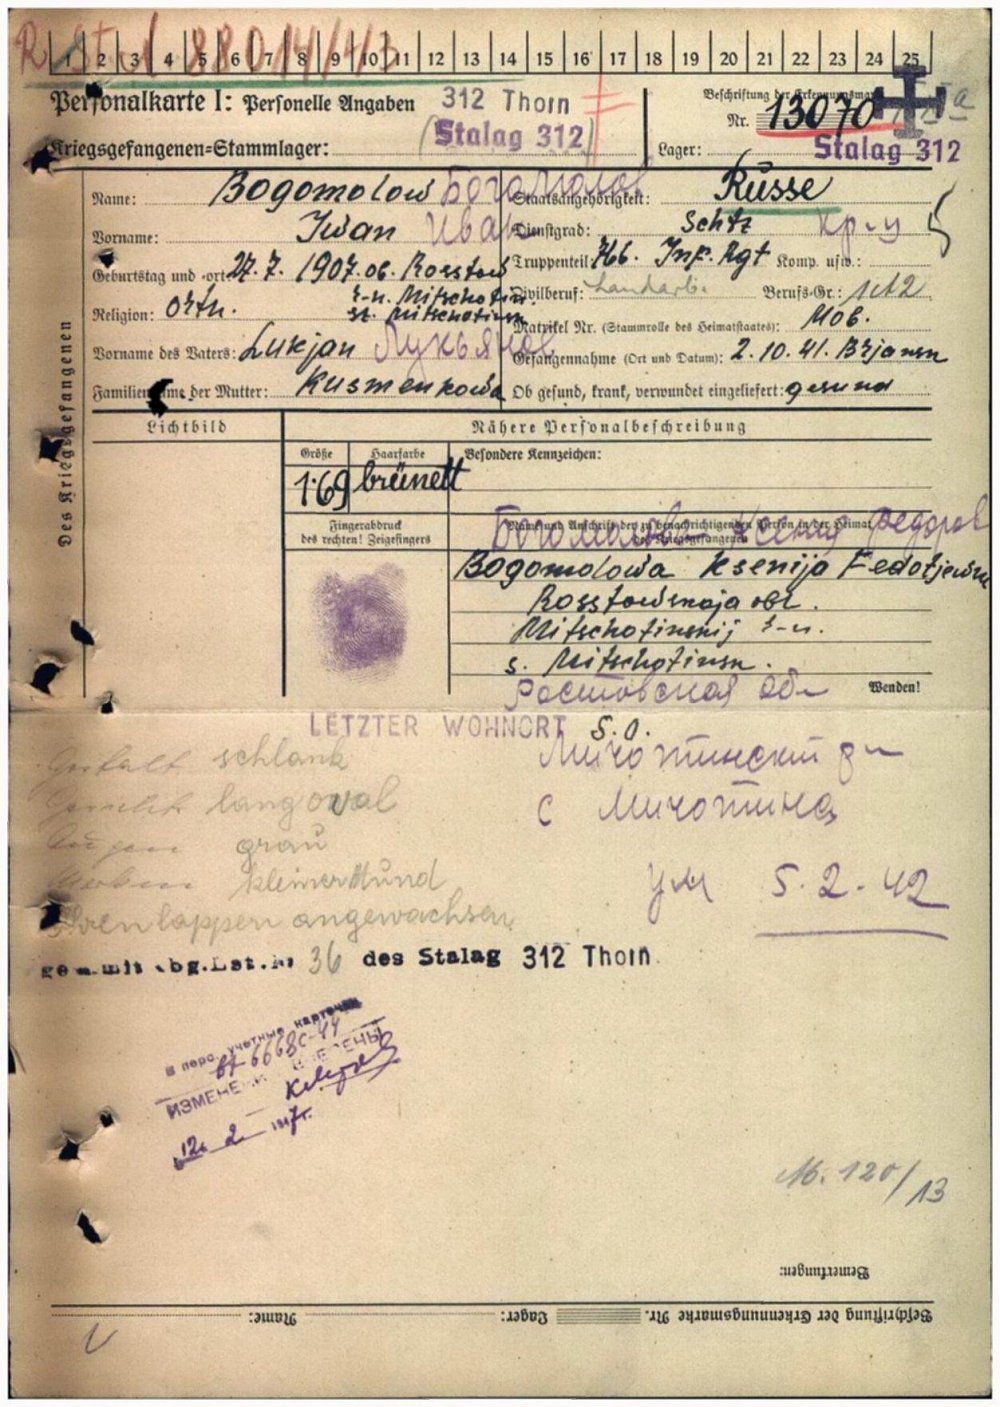 1 2 3 4 5 6 7 8 9 10 11 12 13 14 15 16 17 18 19 20 21 22 23 24 25
Personalkarte I: Personelle Angaben 312 Thorn
Beschriftung der Erkennungsmarke
Nr. 13070
Kriegsgefangenen=Stammlager: (Stalag 312) Lager: Stalag 312
Des Kriegsgefangenen
Name: Bogomolow Богомолов Staatsangehörigkeit: Russe
Vorname: Iwan Иван Dienstgrad: Schtz кр-ц
Geburtstag und -ort: 27.7.1907. ob. Rosstow Truppenteil: 766. Inf. Rgt Komp. usw.:
r-n. Mitschotin. Zivilberuf: Landarb. Berufs-Gr.:
Religion: orth. st. Mitschotinsn Matrikel Nr. (Stammrolle des Heimatstaates): Mob.
Vorname des Vaters: Lukjan Лукьянов Gefangennahme (Ort und Datum): 2.10.41. Brjansn
Familienname der Mutter: Kusmenkowa Ob gesund, krank, verwundet eingeliefert: gesund
Lichtbild Nähere Personalbeschreibung
Größe Haarfarbe Besondere Kennzeichen:
1.69 brünett
Fingerabdruck
des rechten! Zeigefingers
Name und Anschrift der zu benachrichtigenden Person in der Heimat
des Kriegsgefangenen
Богомолова Ксения Федоров
Bogomolowa Ksenija Fedotjewna
Rosstowskaja obl.
Mitschotinskij r-n.
s. Mitschotinsn.
Ростовская обл
Wenden!
LETZTER WOHNORT S.O.
Мичотински р-н
с Мичотина
Gestalt schlank
Gesicht langoval
Augen grau
kleiner Mund
Ohrenlappen angewachsen
ум 5.2.42
gem. mit Abg.Lst.Nr 36 des Stalag 312 Thorn.
В перс. учетные карточки
ИЗМЕНЕНИЯ ВНЕСЕНЫ
12. 2 1947г.
M. 120/13
Bemerkungen:
Beschriftung der Erkennungsmarke Nr. Lager: Name: